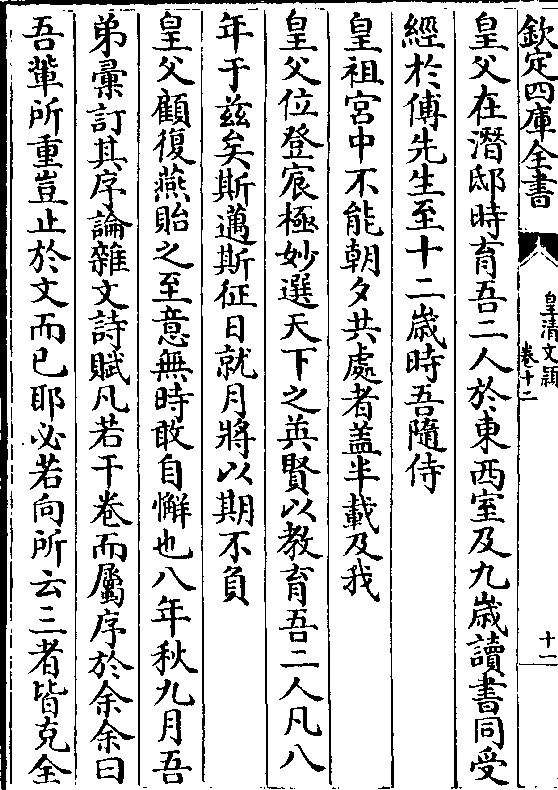 欽定四庫全書
皇清文穎
卷十二
十一
皇父在潛邸時育吾二人於東西室及九歲讀書同受
經於傅先生至十二歲時吾隨侍
皇祖宮中不能朝夕共處者盖半載及我
皇父位登宸極妙選天下之英賢以教育吾二人凡八
年于兹矣斯邁斯征日就月將以期不負
皇父顧復燕貽之至意無時敢自懈也八年秋九月吾
弟彚訂其序論雜文詩賦凡若干卷而屬序於余余曰
吾輩所重豈止於文而已耶必若向所云三者皆克全